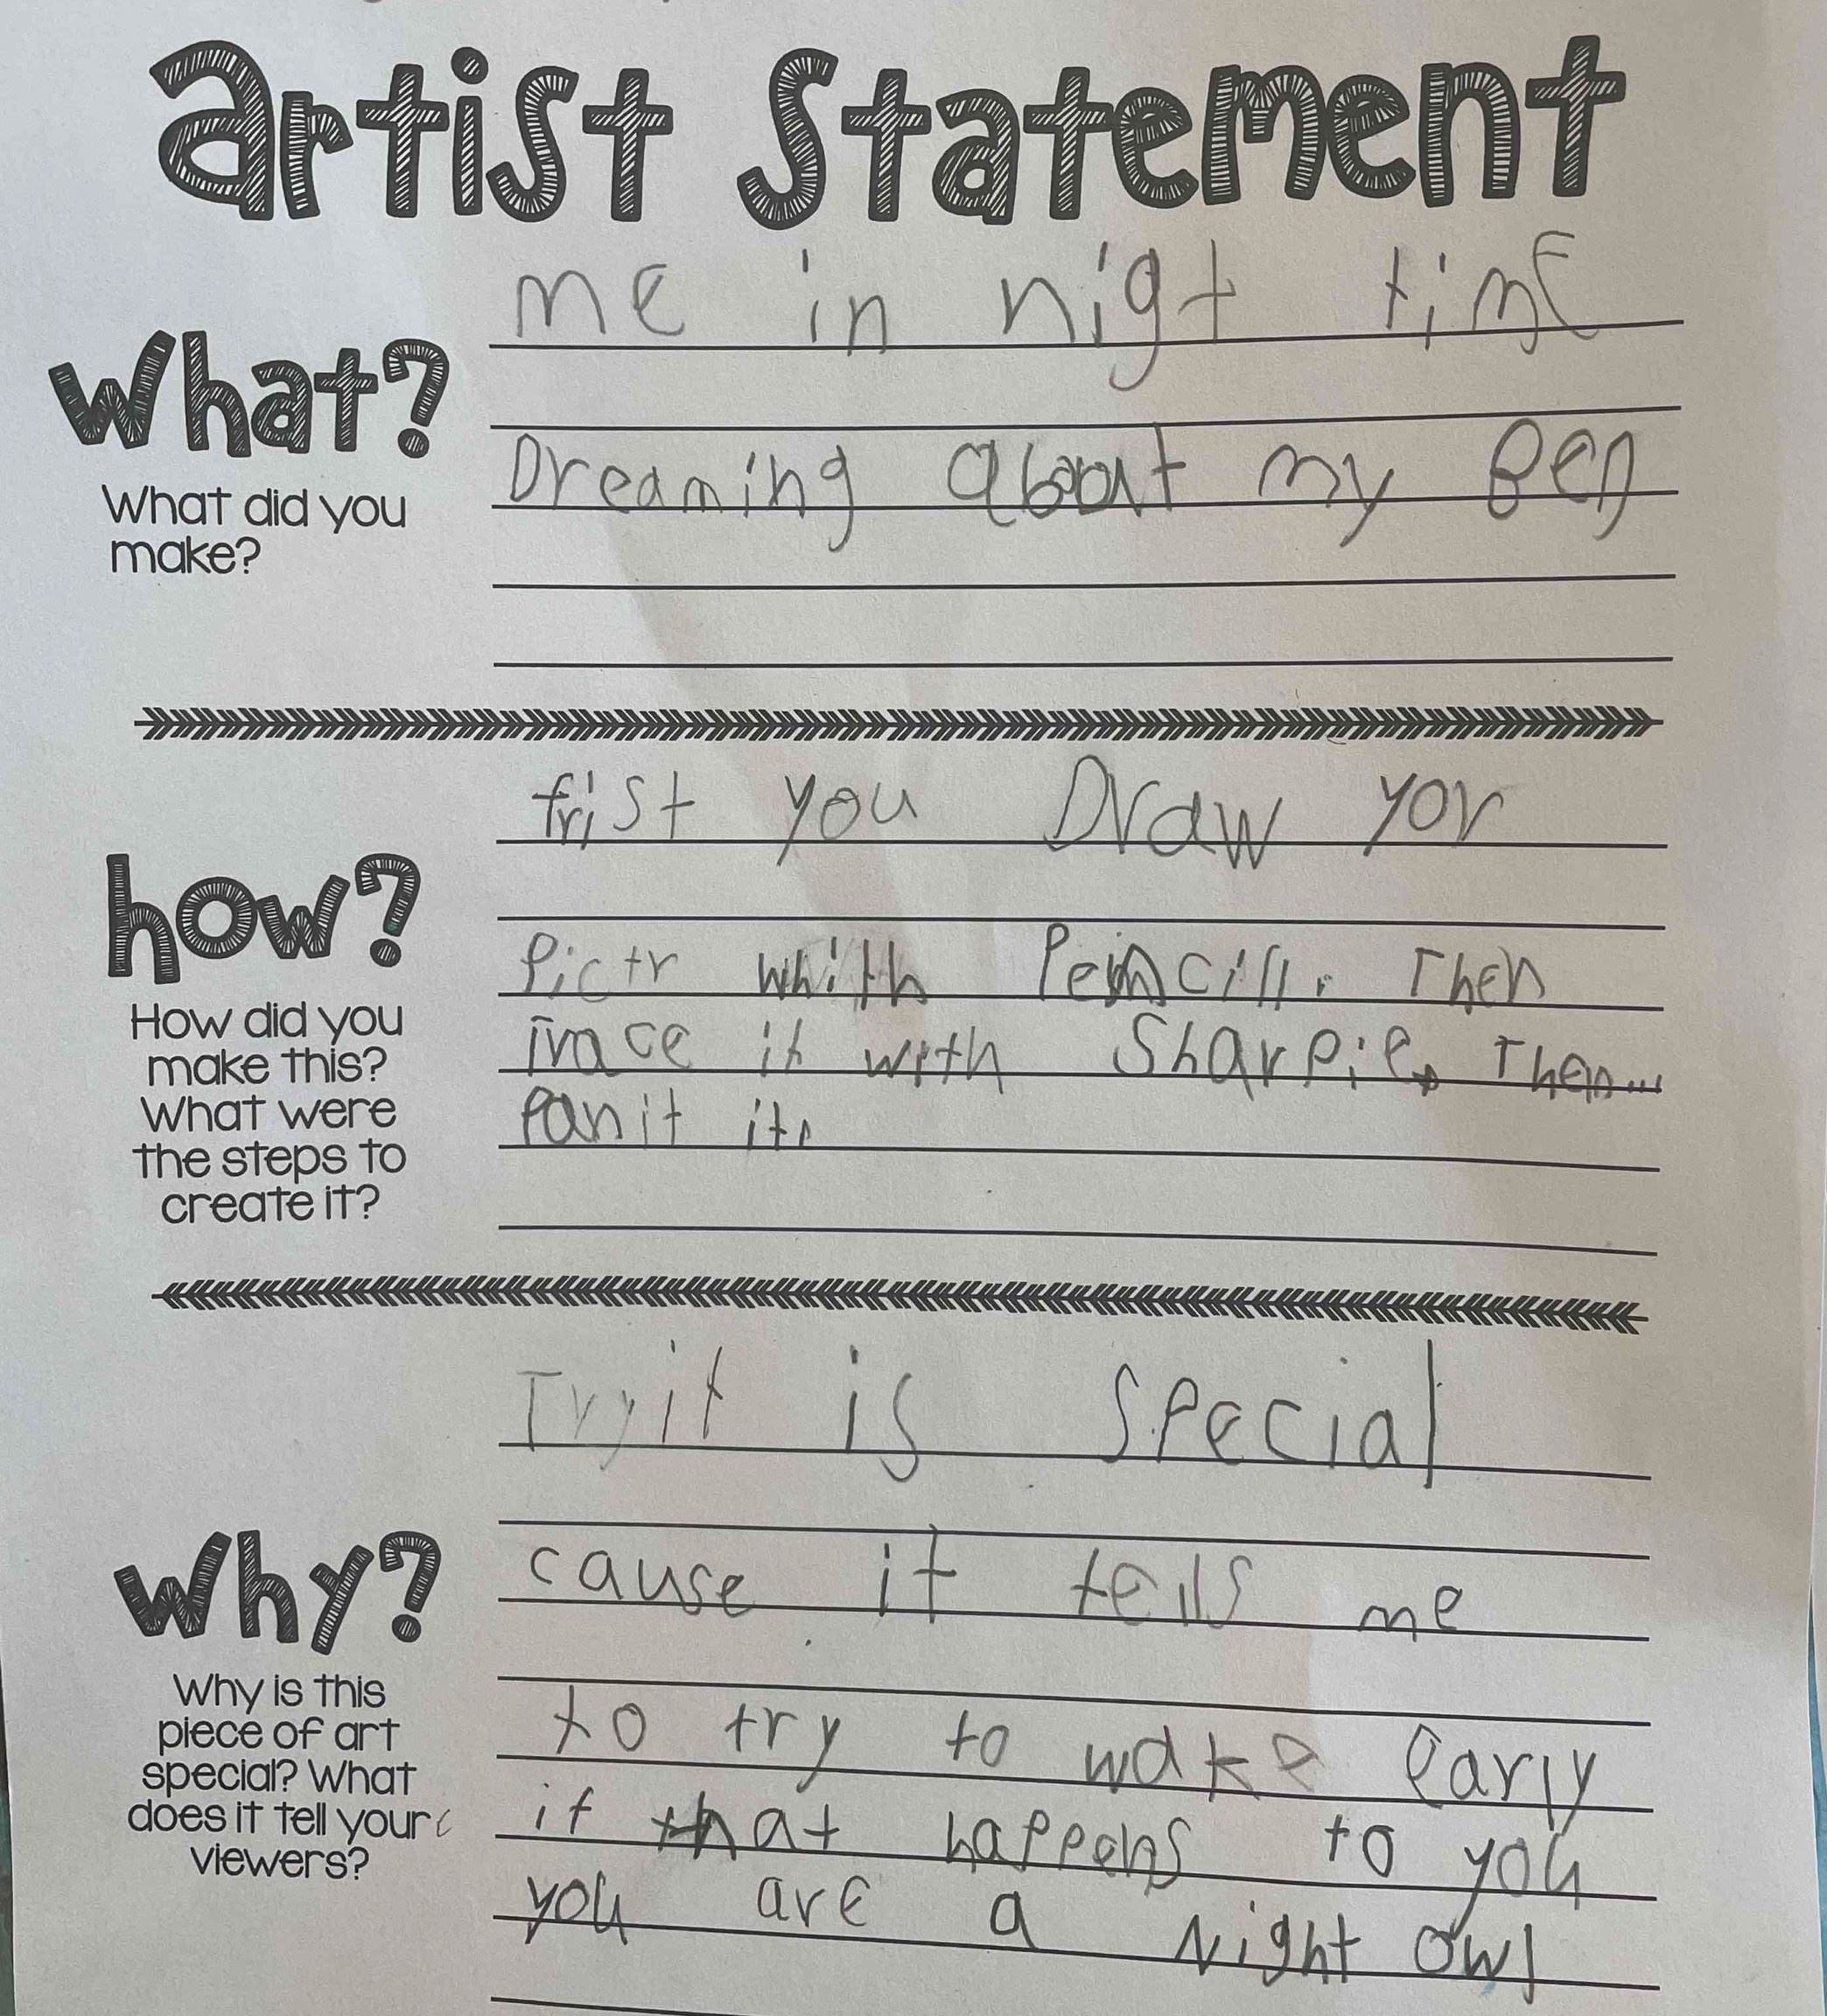 artist statement
me in nigt time
what?
What did you
make?
Dreaming about my
how?
How did you
make this?
What were
the steps to
create it?
frist you Draw yor
Pictr whith Pemcill. Then
Trace it with Sharpie. Then...
Panit it.
why?
Why is this
piece of art
special? What
does it tell your
viewers?
it is special
cause it tells me
to try to wake early
if that happens to you
you are a Night Owl